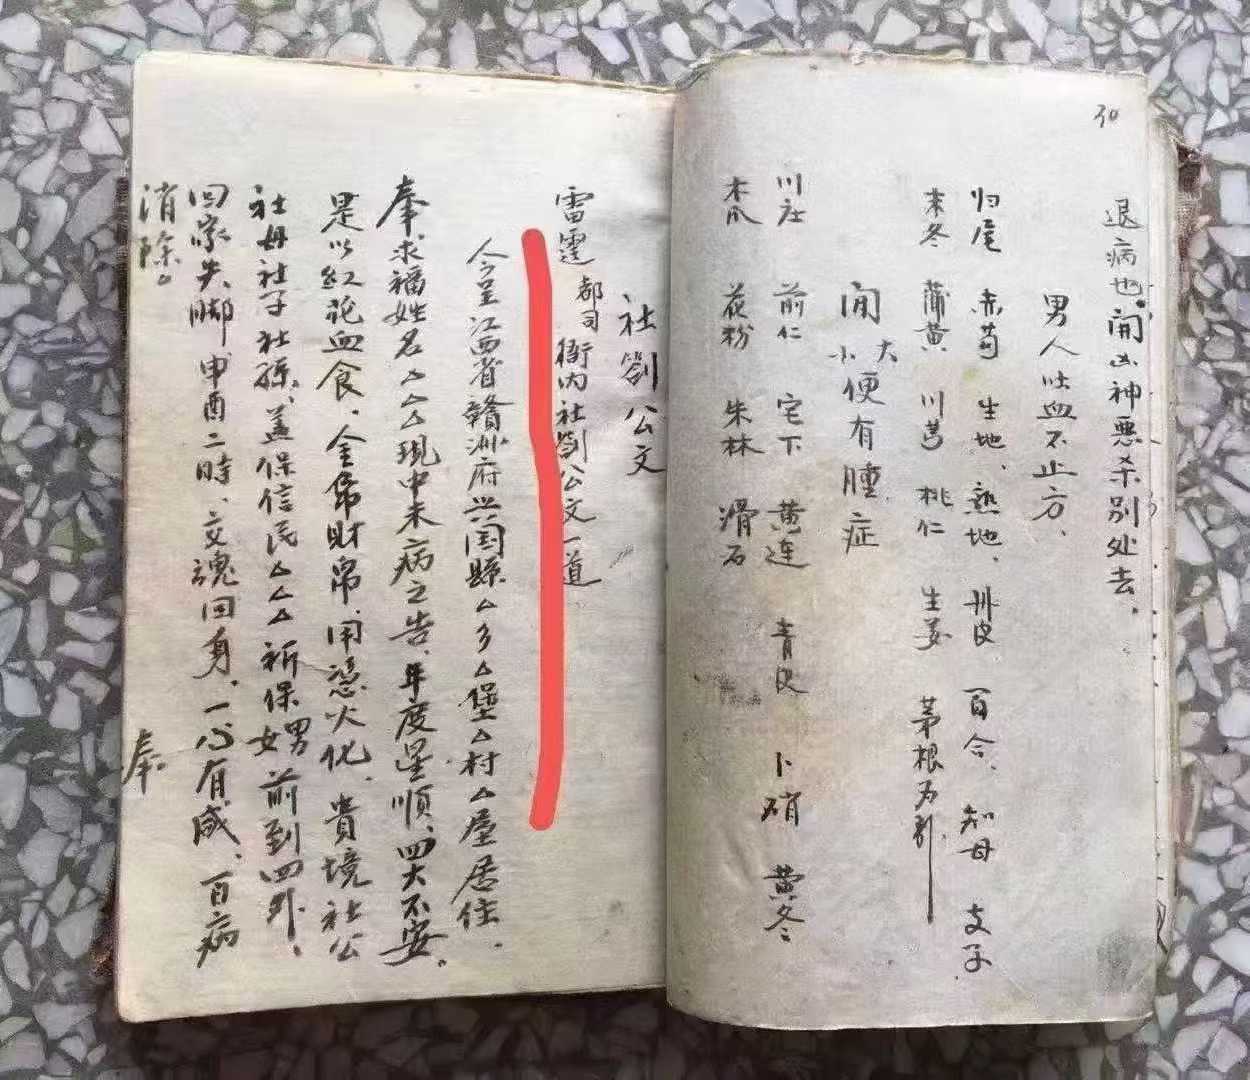 30
退病也。开凶神恶杀别处去。
男人吐血不止方、
归尾 赤芍 生地、熟地、丹皮 百合、知母 支子
末冬 蒲黄 川芎 桃仁 生姜 茅根为引
开大小便有腫症
川庄 前仁 宅下 黄连 青皮 卜硝 黄冬
木瓜 花粉 朱林 滑石
社劄公文
雷霆都司衙内社劄公文一道
今呈江西省赣洲府兴国縣△乡△堡△村△屋居住、
奉求福姓名△△△現中未病之告、年度星順、四大不安。
是以红花血食、金帛財帛、用憑火化、貴境社公
社母社子社孫、盖保信民△△△祈保男女前到四外、
回家失脚申酉二時、交魂回身、一心有感、百病
消除。
奉